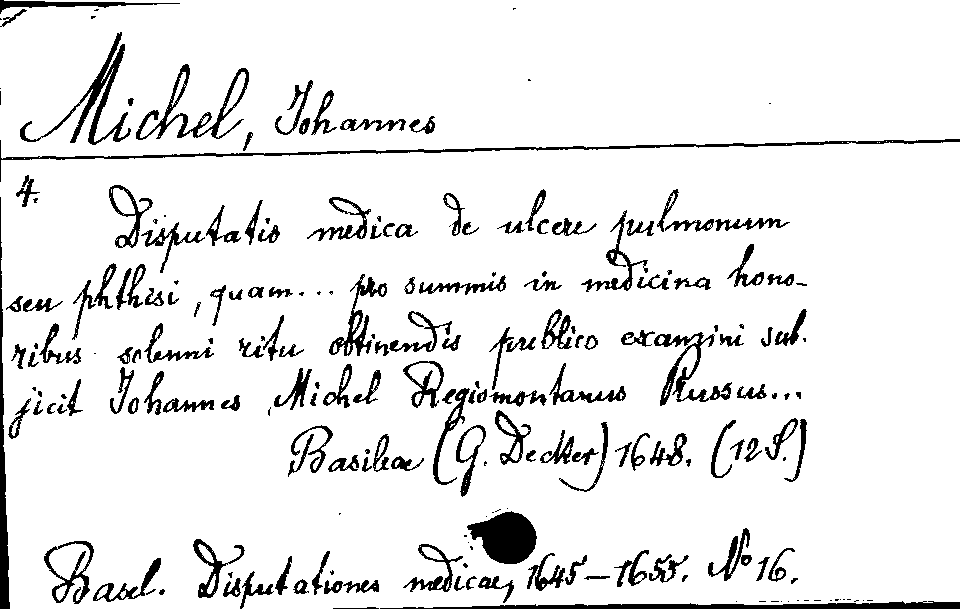 Michel, Johannes
4.
Disputatio medica de ulcere pulmonum
seu phthisi, quam... pro summis in medicina hono-
ribus solenni ritu obtinendis publico examini sub-
jicit Johannes Michel Regiomontanus Prussus...
Basileae (G. Decker) 1648. (12 S.)
Basel. Disputationes medicae, 1645–1655. No 16.